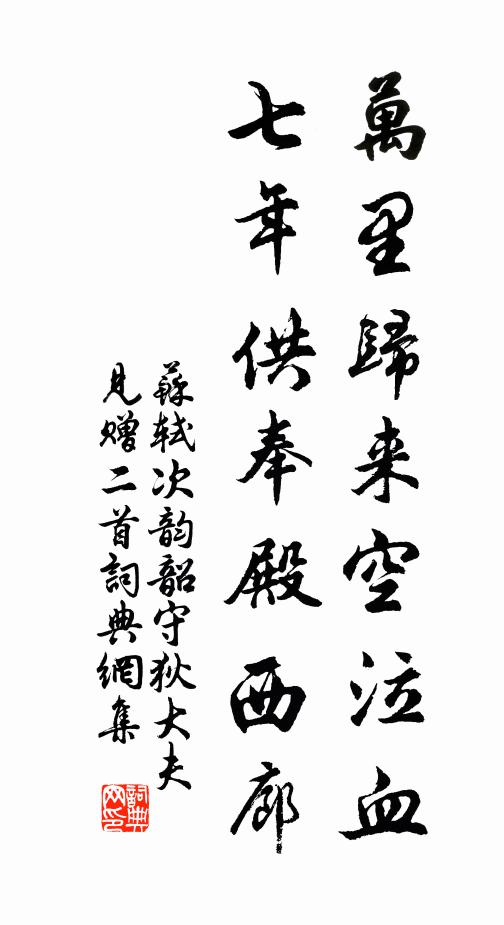 萬里歸来空泣血
七年供奉殿西廊
蘇軾次韵韶守狄大夫
見贈二首詞典網集
詞典
网印